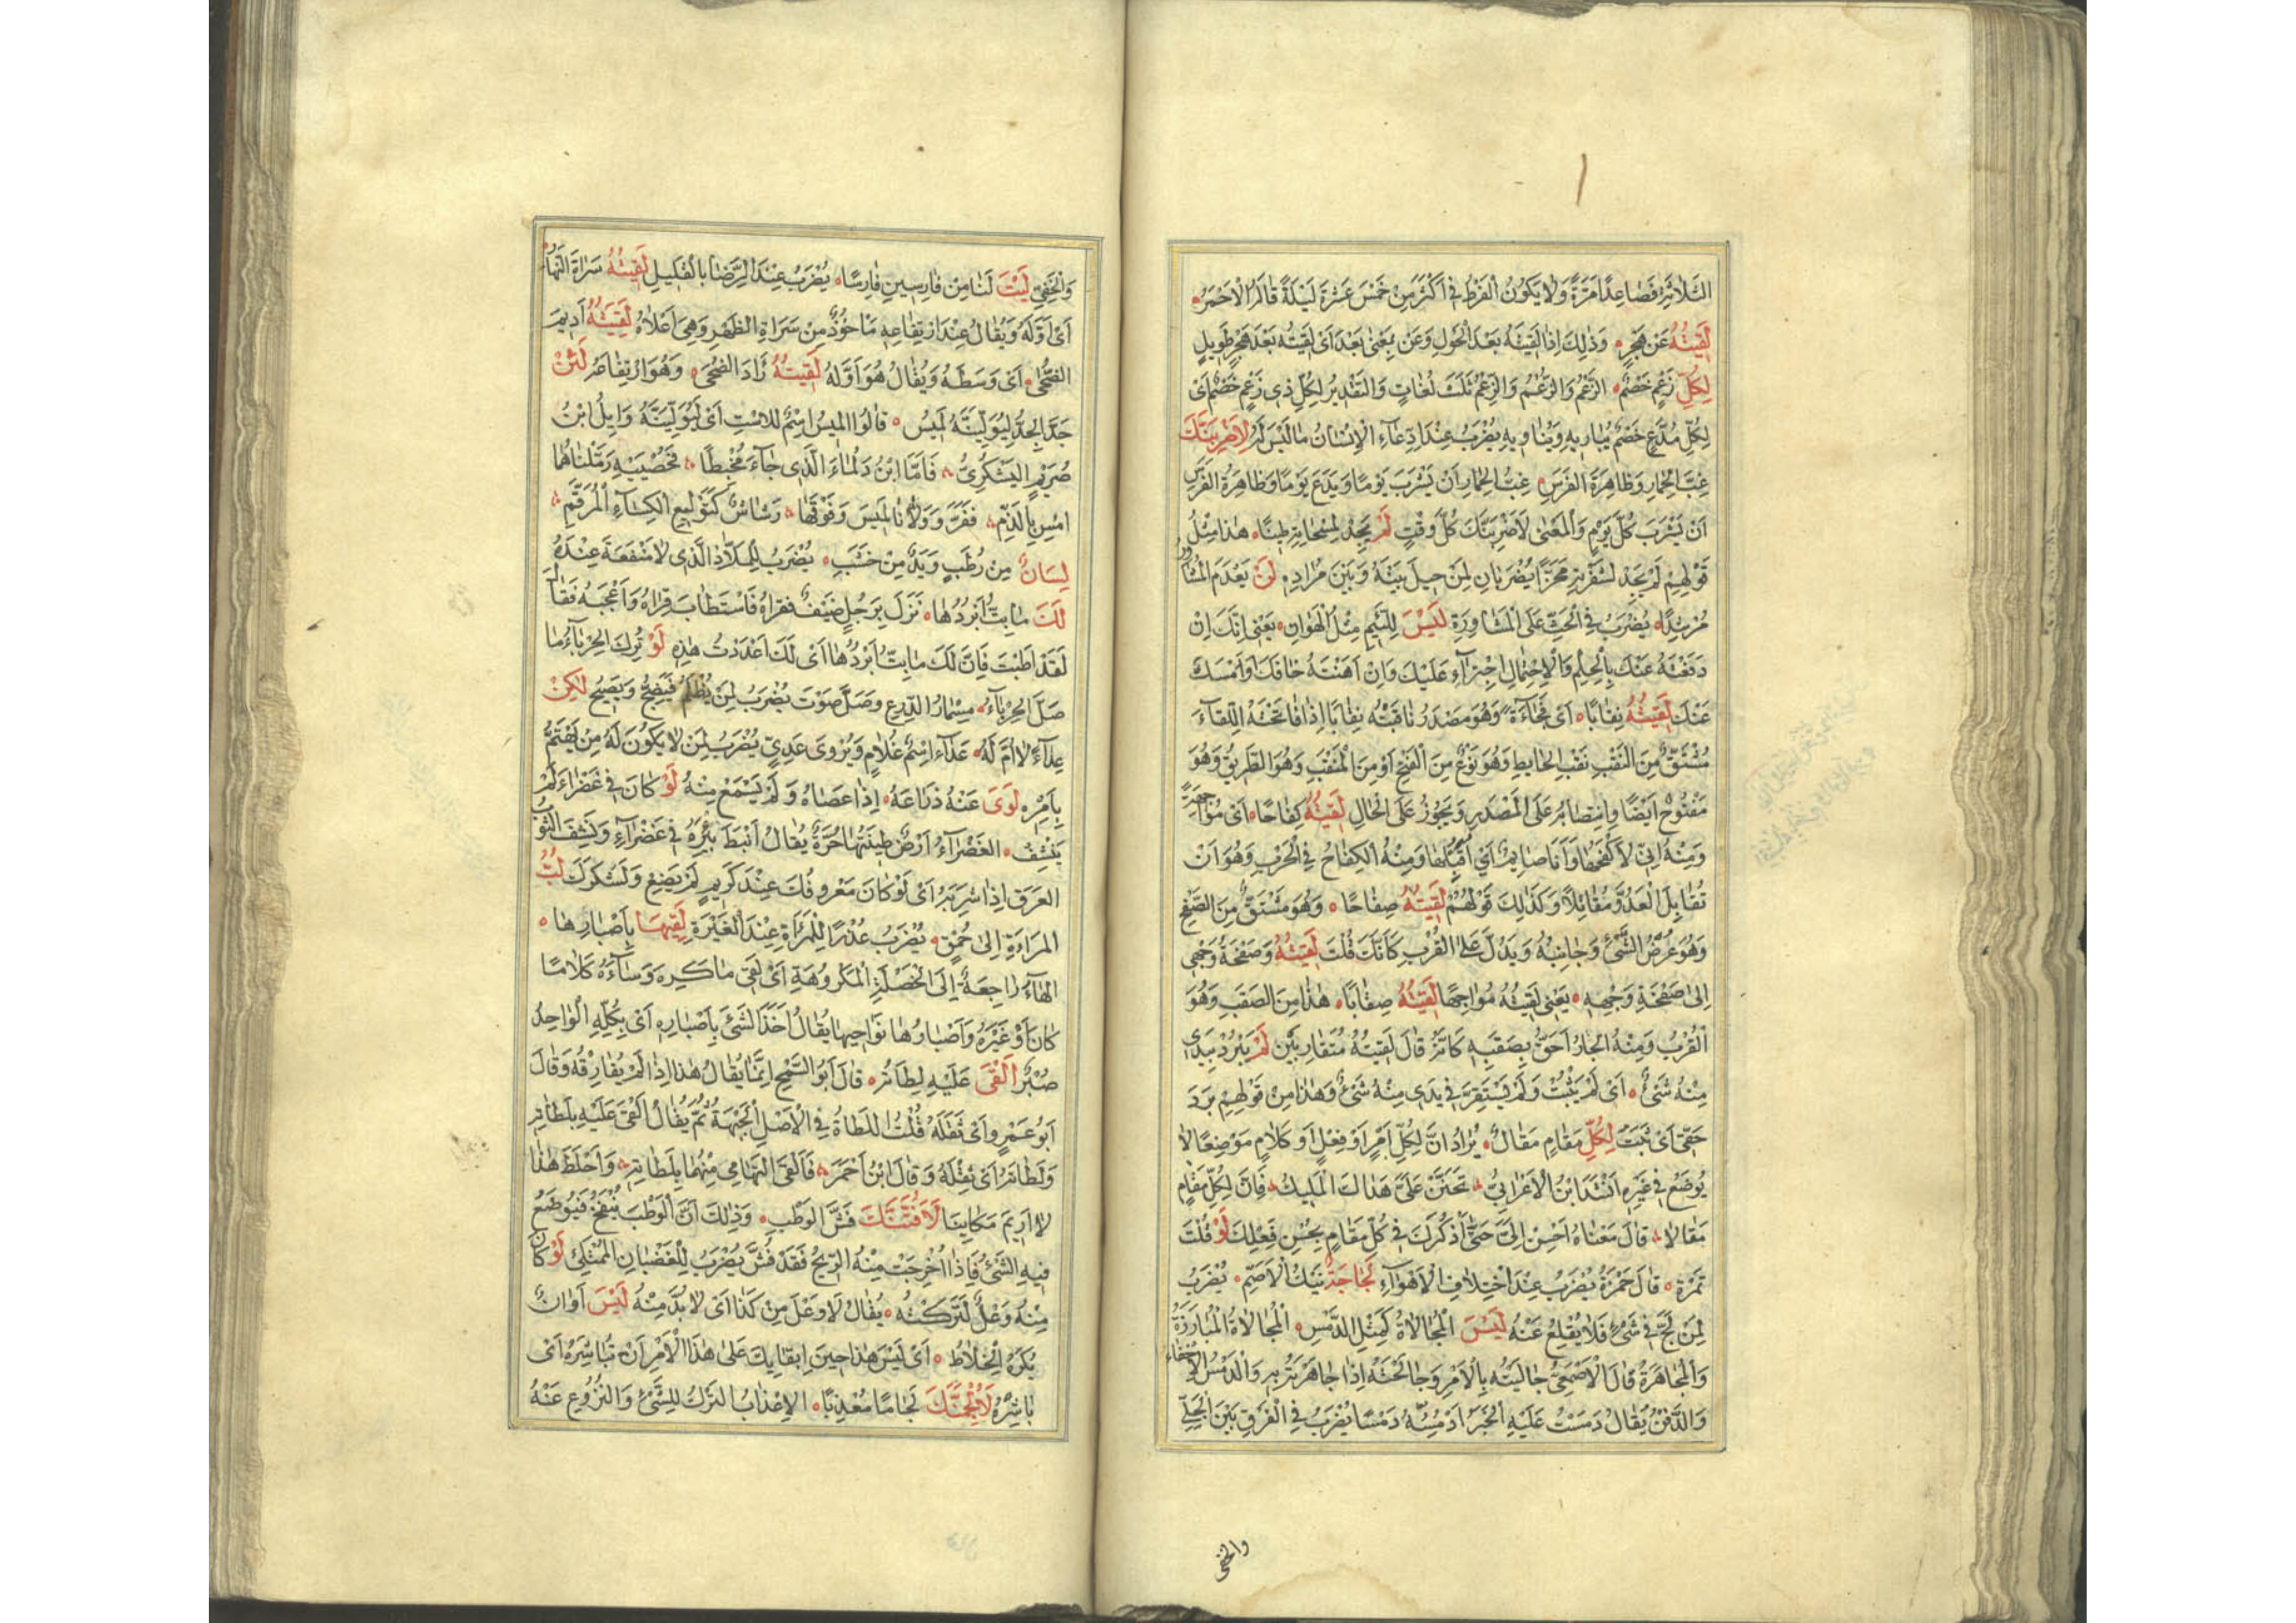 الثَّلاثَةِ فَصَاعِدًا مَرَّةً وَلَا يَكُونُ الْفَرْطُ فِي أَكْثَرَ مِنْ خَمْسَ عَشْرَةَ لَيْلَةً قَالَهُ الْأَحْمَرُ
لَقِيتُهُ عَنْ هَجْرٍ وَذٰلِكَ إِذَا لَقِيتَهُ بَعْدَ الْحَوْلِ وَعَنْ بِمَعْنَى بَعْدَ أَيْ لَقِيتُهُ بَعْدَ هَجْرٍ طَوِيلٍ
لِكُلِّ زَعْمٍ خَصْمٌ الزَّعْمُ وَالزُّعْمُ وَالزِّعْمُ ثَلٰثُ لُغَاتٍ وَالتَّقْدِيرُ لِكُلِّ ذِي زَعْمٍ خَصْمٌ أَيْ
لِكُلِّ مُدَّعٍ خَصْمٌ يُبَارِيهِ وَيُنَاوِيهِ يُضْرَبُ عِنْدَ ادِّعَاءِ الْإِنْسَانِ مَا لَيْسَ لَهُ لَأَضْرِبَنَّكَ
غِبَّ الْحِمَارِ وَظَاهِرَةَ الْفَرَسِ غِبُّ الْحِمَارِ أَنْ يَشْرَبَ يَوْمًا وَيَدَعَ يَوْمًا وَظَاهِرَةُ الْفَرَسِ
أَنْ يَشْرَبَ كُلَّ يَوْمٍ وَالْمَعْنَى لَأَضْرِبَنَّكَ كُلَّ وَقْتٍ لَمْ يَجِدْ لِمِسْحَاتِهِ طِينًا هٰذَا مِثْلُ
قَوْلِهِمْ لَمْ يَجِدْ لِشَفْرَتِهِ مَحَزًّا يُضْرَبَانِ لِمَنْ حِيلَ بَيْنَهُ وَبَيْنَ مُرَادِهِ لَنْ يَعْدَمَ الْمُشَاوِرُ
مُرْشِدًا يُضْرَبُ فِي الْحَثِّ عَلَى الْمُشَاوَرَةِ لَيْسَ لِلَّئِيمِ مِثْلُ الْهَوَانِ يَعْنِي إِنَّكَ إِنْ
دَفَعْتَهُ عَنْكَ بِالْحِلْمِ وَالْاِحْتِمَالِ اجْتَرَأَ عَلَيْكَ وَإِنْ أَهَنْتَهُ خَافَكَ وَأَمْسَكَ
عَنْكَ لَقِيتُهُ نِقَابًا أَيْ فُجَاءَةً وَهُوَ مَصْدَرُ نَاقَبْتُهُ نِقَابًا إِذَا فَاجَأْتَهُ اللِّقَاءَ
مُشْتَقٌّ مِنَ النَّقْبِ نَقْبِ الْحَائِطِ وَهُوَ نَوْعٌ مِنَ الْفَتْحِ أَوْ مِنَ الْمَنْقَبِ وَهُوَ الطَّرِيقُ وَهُوَ
مَفْتُوحٌ أَيْضًا وَانْتِصَابُهُ عَلَى الْمَصْدَرِ وَيَجُوزُ عَلَى الْحَالِ لَقِيتُهُ كِفَاحًا أَيْ مُوَاجَهَةً
وَمِنْهُ إِنِّي لَأَكْفَحُهَا وَأَنَا صَائِمٌ أَيْ أُقَبِّلُهَا وَمِنْهُ الْكِفَاحُ فِي الْحَرْبِ وَهُوَ أَنْ
تُقَابِلَ الْعَدُوَّ مُقَاتِلًا وَكَذٰلِكَ قَوْلُهُمْ لَقِيتُهُ صِفَاحًا وَهُوَ مُشْتَقٌّ مِنَ الصَّفْحِ
وَهُوَ عُرْضُ الشَّيْءِ وَجَانِبُهُ وَيَدُلُّ عَلَى الْقُرْبِ كَأَنَّكَ قُلْتَ لَقِيتُهُ وَصَفْحَةُ وَجْهِي
إِلَى صَفْحَةِ وَجْهِهِ يَعْنِي لَقِيتُهُ مُوَاجِهًا لَقِيتُهُ صِقَابًا هٰذَا مِنَ الصَّقَبِ وَهُوَ
الْقُرْبُ وَمِنْهُ الْجَارُ أَحَقُّ بِصَقَبِهِ كَأَنَّهُ قَالَ لَقِيتُهُ مُتَقَارِبَيْنِ لَمْ يَبْرُدْ بِيَدِي
مِنْهُ شَيْءٌ أَيْ لَمْ يَثْبُتْ وَلَمْ يَسْتَقِرَّ فِي يَدِي مِنْهُ شَيْءٌ وَهٰذَا مِنْ قَوْلِهِمْ بَرَدَ
حَقِّي أَيْ ثَبَتَ لِكُلِّ مَقَامٍ مَقَالٌ يُرَادُ أَنَّ لِكُلِّ أَمْرٍ أَوْ فِعْلٍ أَوْ كَلَامٍ مَوْضِعًا لَا
يُوضَعُ فِي غَيْرِهِ أَنْشَدَ ابْنُ الْأَعْرَابِيِّ تَحَنَّنْ عَلَيَّ هَدَاكَ الْمَلِيكُ فَإِنَّ لِكُلِّ مَقَامٍ
مَقَالًا قَالَ مَعْنَاهُ أَحْسِنْ إِلَيَّ حَتَّى أَذْكُرَكَ فِي كُلِّ مَقَامٍ بِحُسْنِ فِعْلِكَ لَوْ قُلْتَ
تَمْرَةً قَالَ جَمْرَةً يُضْرَبُ عِنْدَ اخْتِلَافِ الْأَهْوَاءِ يُضْرَبُ
لِمَنْ لَجَّ فِي شَيْءٍ فَلَا يُقْلِعُ عَنْهُ لَيْسَ الْمُجَالَاةُ كَمِثْلِ الدَّمْسِ الْمُجَالَاةُ الْمُبَارَزَةُ
وَالْمُجَاهَرَةُ قَالَ الْأَصْمَعِيُّ جَالَيْتُهُ بِالْأَمْرِ وَجَالَحْتُهُ إِذَا جَاهَرْتَهُ بِهِ وَالدَّمْسُ الْإِخْفَاءُ
وَالدَّفْنُ يُقَالُ دَمَسْتُ عَلَيْهِ الْخَبَرَ أَدْمُسُهُ دَمْسًا يُضْرَبُ فِي الْفَرْقِ بَيْنَ الْجَلِيِّ
والخفي
وَالْخَفِيِّ لَيْتَ لَنَا مِنْ فَارِسِينِ فَارِسًا يُضْرَبُ عِنْدَ الرِّضَا بِالْقَلِيلِ لَقِيتُهُ سَرَاةَ النَّهَارِ
أَيْ أَوَّلَهُ وَيُقَالُ عِنْدَ ارْتِفَاعِهِ مَأْخُوذٌ مِنْ سَرَاةِ الظَّهْرِ وَهِيَ أَعْلَاهُ لَقِيتُهُ أَدِيمَ
الضُّحَى أَيْ وَسَطَهُ وَيُقَالُ هُوَ أَوَّلُهُ لَقِيتُهُ رَأْدَ الضُّحَى وَهُوَ ارْتِفَاعُهُ لَئِنْ
قَالُوا لَمِيسُ اسْمٌ لِلْاِسْتِ وَايِلُ ابْنُ
صُرَيْمٍ الْيَشْكُرِيُّ فَأَمَّا ابْنُ دَلْمَاءَ الَّذِي جَاءَ مُخْبِطًا فَخُصْيَيْهِ رَمَّلْنَاهُمَا
أَمْسِ بِالدَّمِ فَفَرَّ وَوَلَّانَا لَمِيسَ وَفَوْقَهَا رَشَاشٌ كَتَوْلِيعِ الْكِسَاءِ الْمُرَقَّمِ
لِسَانٌ مِنْ رُطَبٍ وَيَدٌ مِنْ خَشَبٍ يُضْرَبُ لِلْمَلَّاذِ الَّذِي لَا مَنْفَعَةَ عِنْدَهُ
لَكَ مَا بِتُّ أُبَرِّدُهَا نَزَلَ بِرَجُلٍ ضَيْفٌ فَقَرَاهُ فَاسْتَطَابَ قِرَاهُ وَأَعْجَبَهُ فَقَالَ
لَقَدْ أَطَبْتَ فَإِنَّ لَكَ مَا بِتُّ أُبَرِّدُهَا أَيْ لَكَ أَعْدَدْتُ هٰذِهِ لَوْ تُرِكَ الْحِرْبَاءُ مَا
صَلَّ الْحِرْبَاءُ مِسْمَارُ الدِّرْعِ وَصَلَّ صَوَّتَ يُضْرَبُ لِمَنْ يُظْلَمُ فَيَضِجُّ وَيَصِيحُ لٰكِنْ
عِدَاءٌ لَا أُمَّ لَهُ عَدَاء اسْمُ غُلَامٍ وَيُرْوَى عَدِيٌّ يُضْرَبُ لِمَنْ لَا يَكُونُ لَهُ مَنْ يَهْتَمُّ
بِأَمْرِهِ لَوَى عَنْهُ ذِرَاعَهُ إِذَا عَصَاهُ وَلَمْ يَسْمَعْ مِنْهُ لَوْ كَانَ فِي غَضْرَاءَ لَمْ
يَنْشَفْ الْغَضْرَاءُ أَرْضٌ طِينَتُهَا حُرَّةٌ يُقَالُ أَنْبَطَ بِئْرَهُ فِي غَضْرَاءَ وَنَشِفَ الثَّوْبُ
الْعَرَقَ إِذَا شَرِبَهُ أَيْ لَوْ كَانَ مَعْرُوفُكَ عِنْدَ كَرِيمٍ لَمْ يَضِعْ وَلَشَكَرَكَ لُبُّ
الْمَرْأَةِ إِلَى حُمْقٍ يُضْرَبُ عُذْرًا لِلْمَرْأَةِ عِنْدَ الْغَيْرَةِ لَقِيَهَا بِأَصْبَارِهَا
الْهَاءُ رَاجِعَةٌ إِلَى الْخَصْلَةِ الْمَكْرُوهَةِ أَيْ لَقِيَ مَا كَرِهَ وَسَاءَهُ كَلَامًا
كَانَ أَوْ غَيْرَهُ وَأَصْبَارُهَا نَوَاحِيهَا يُقَالُ أَخَذَ الشَّيْءَ بِأَصْبَارِهِ أَيْ بِكُلِّهِ الْوَاحِدُ
صُبْرٌ أَلْقَى عَلَيْهِ لَطَاتَهُ قَالَ أَبُو السَّمْحِ إِنَّمَا يُقَالُ هٰذَا إِذَا لَمْ يُفَارِقْهُ وَقَالَ
أَبُو عَمْرٍو أَيْ ثَقَلَهُ قُلْتُ اللَّطَاةُ فِي الْأَصْلِ الْجَبْهَةُ ثُمَّ يُقَالُ أَلْقَى عَلَيْهِ بِلَطَاتِهِ
وَلَطَاتَهُ أَيْ ثِقْلَهُ وَقَالَ ابْنُ أَحْمَرَ فَأَلْقَى التِّهَامِي مِنْهُمَا بِلَطَاتِهِ وَأَحْلَطَ هٰذَا
لَا أَرِيمُ مَكَانِيَا لَأَفُشَّنَّكَ فَشَّ الْوَطْبِ وَذٰلِكَ أَنَّ الْوَطْبَ يُنْفَخُ فَيُوضَعُ
فِيهِ الشَّيْءُ فَإِذَا أُخْرِجَتْ مِنْهُ الرِّيحُ فَقَدْ فُشَّ يُضْرَبُ لِلْغَضْبَانِ الْمُمْتَلِئِ لَوْ كَانَ
مِنْهُ وَعْلٌ لَتَرَكْتُهُ يُقَالُ لَا وَعْلَ مِنْ كَذَا أَيْ لَا بُدَّ مِنْهُ لَيْسَ أَوَانُ
يَكْرَهُ الْخِلَاطُ أَيْ لَيْسَ هٰذَا حِينَ إِبْقَائِكَ عَلَى هٰذَا الْأَمْرِ أَنْ تُبَاشِرَهُ أَيْ
بَاشِرْهُ لَأُلْجِمَنَّكَ لِجَامًا مُعْذِبًا الْإِعْذَابُ التَّرْكُ لِلشَّيْءِ وَالنُّزُوعُ عَنْهُ